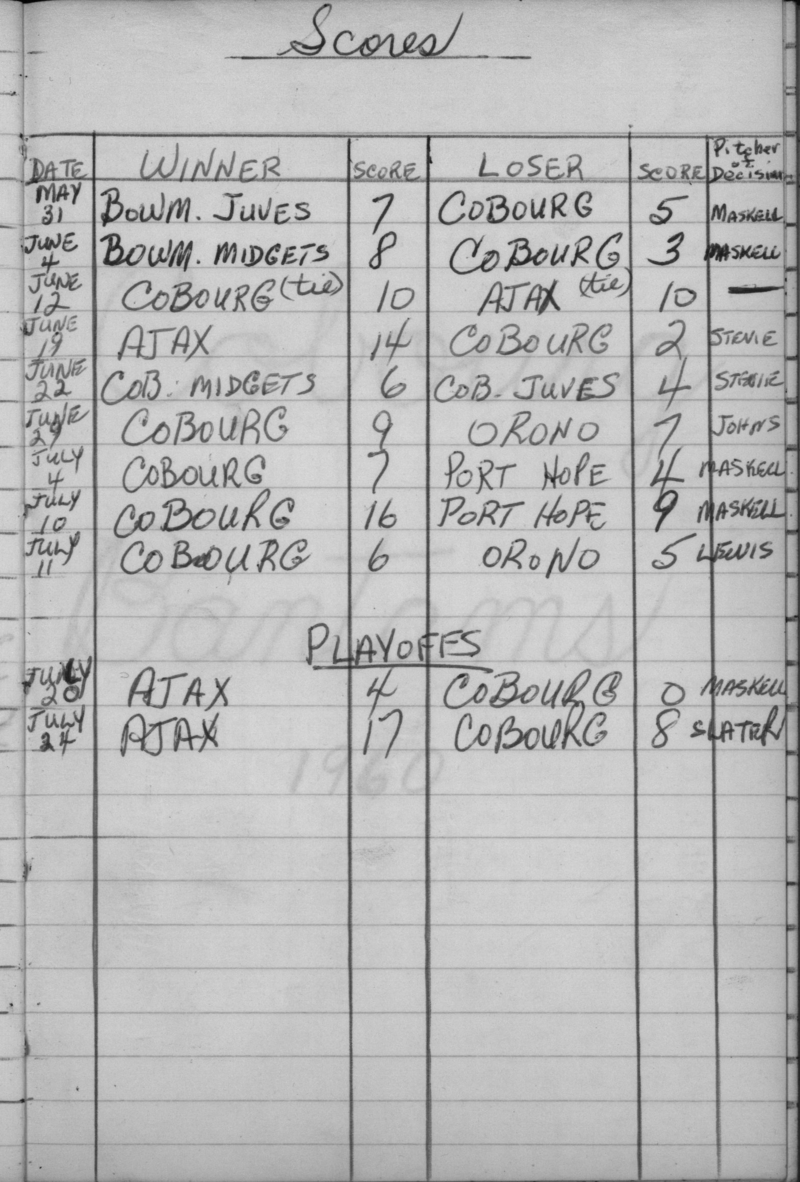 Scores
DATE WINNER SCORE LOSER SCORE Pitcher of Decision
MAY 31 BOWM. JUVES 7 COBOURG 5 MASKELL
JUNE 4 BOWM. MIDGETS 8 COBOURG 3 MASKELL
JUNE 12 COBOURG (tie) 10 AJAX (tie) 10 —
JUNE 19 AJAX 14 COBOURG 2 STEVIE
JUNE 22 COB. MIDGETS 6 COB. JUVES 4 STEVIE
JUNE 29 COBOURG 9 ORONO 7 JOHNS
JULY 4 COBOURG 7 PORT HOPE 4 MASKELL
JULY 10 COBOURG 16 PORT HOPE 9 MASKELL
JULY 11 COBOURG 6 ORONO 5 LEWIS
PLAYOFFS
JULY 20 AJAX 4 COBOURG 0 MASKELL
JULY 24 AJAX 17 COBOURG 8 SLATER
Bantams
1960